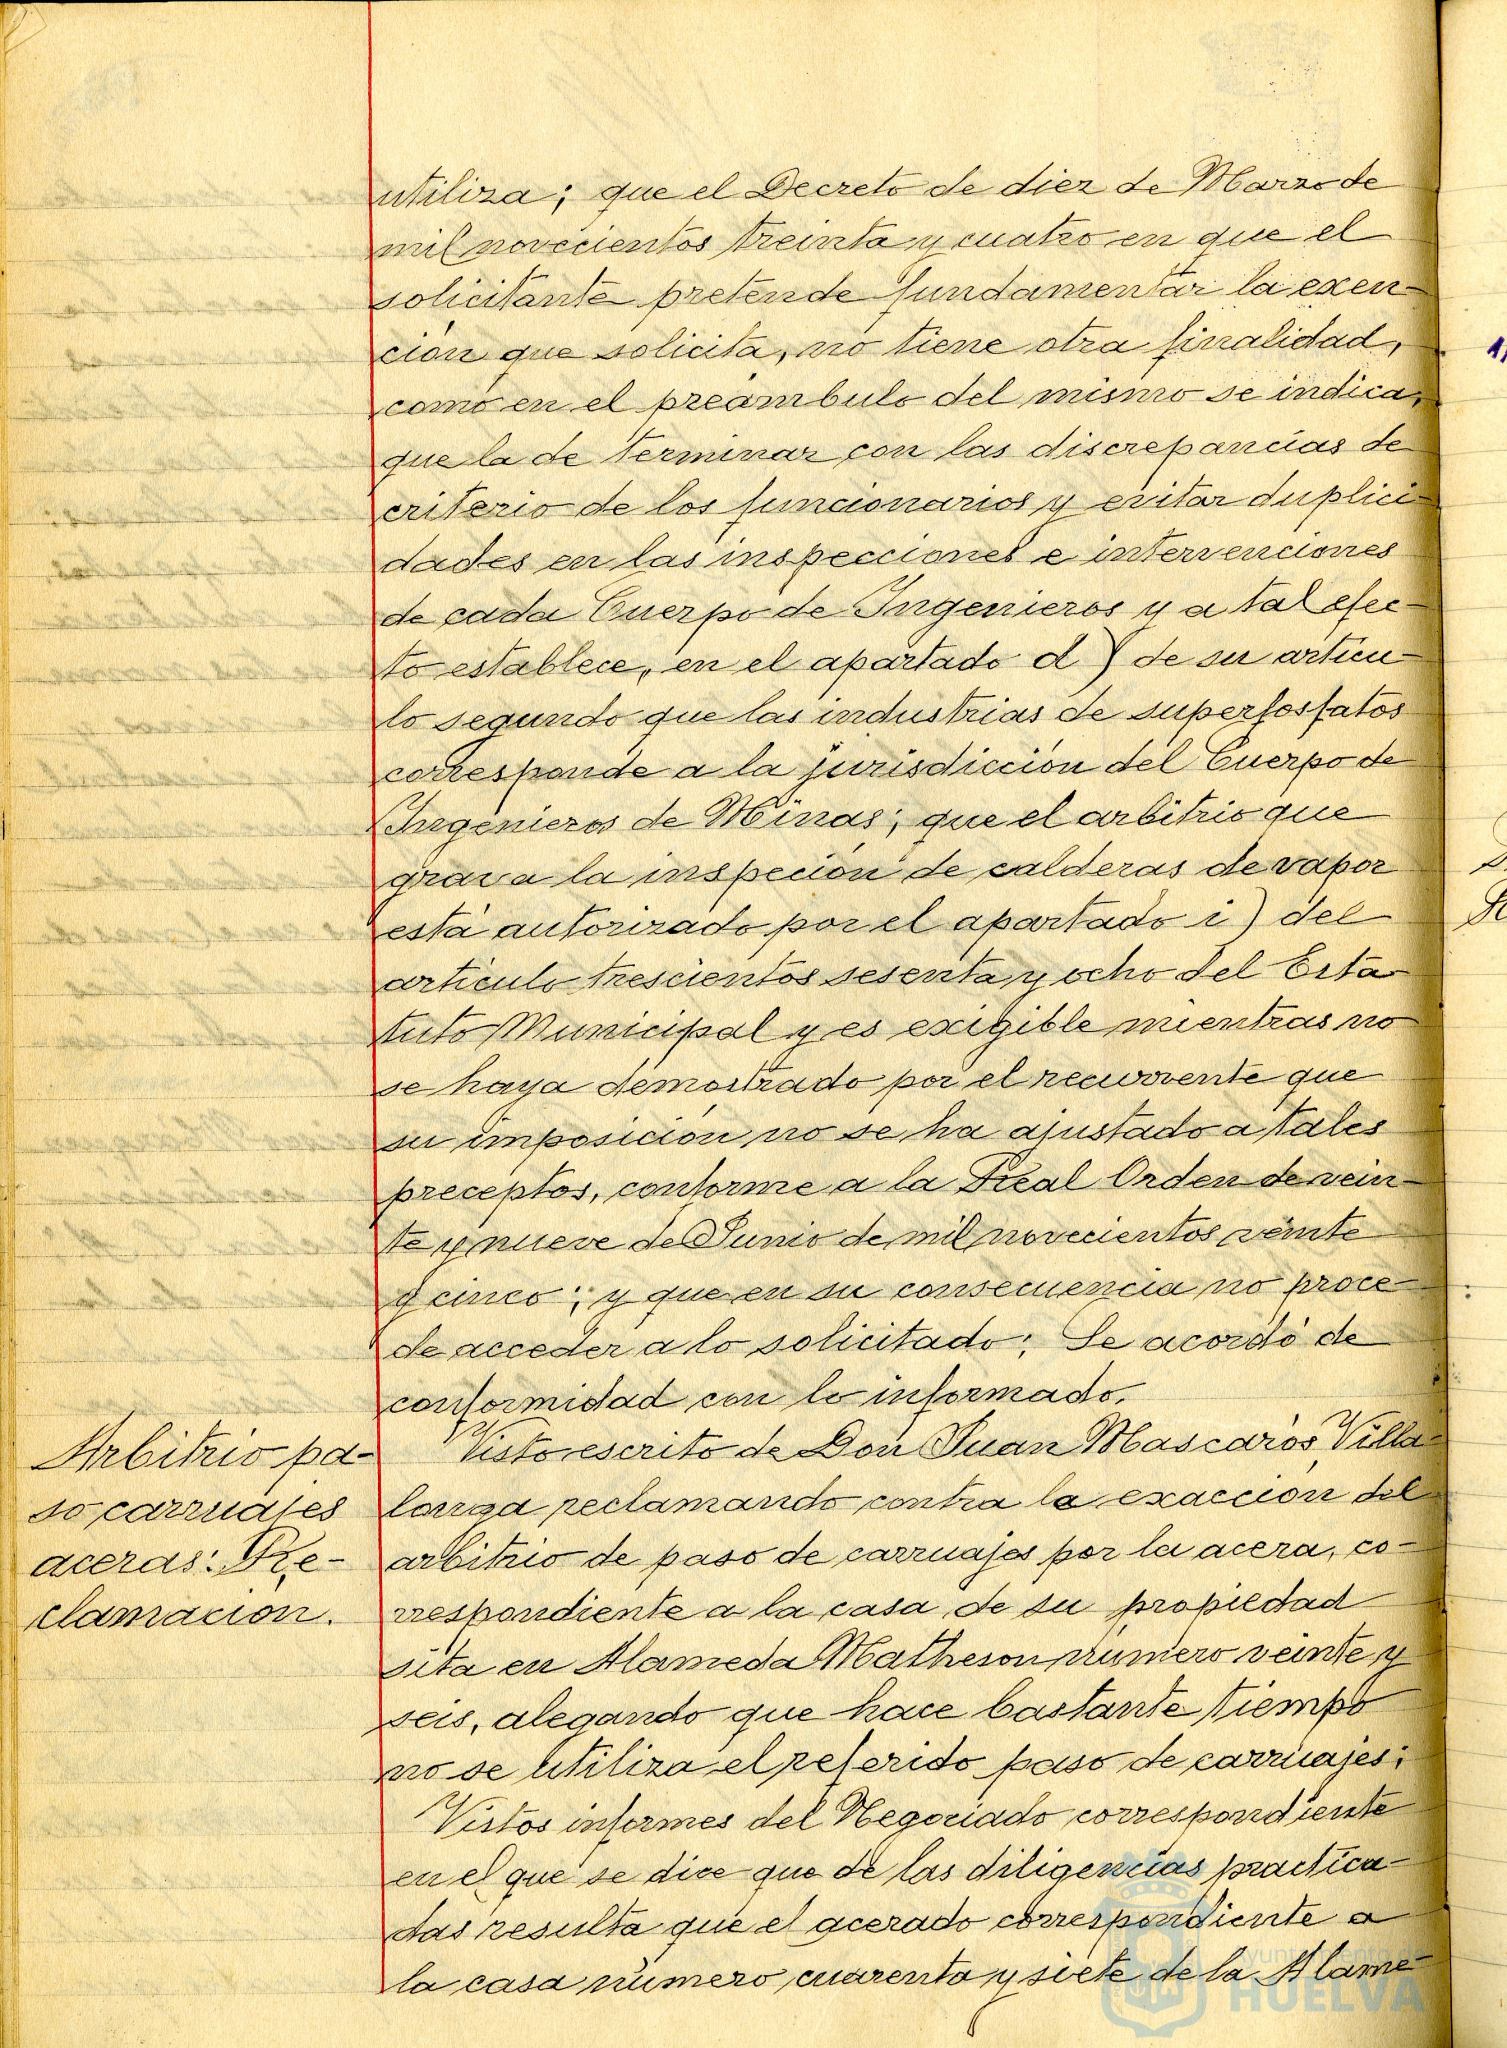 utiliza; que el Decreto de diez de Marzo de
mil novecientos treinta y cuatro en que el
solicitante pretende fundamentar la exen-
ción que solicita, no tiene otra finalidad,
como en el preámbulo del mismo se indica,
que la de terminar con las discrepancias de
criterio de los funcionarios y evitar duplici-
dades en las inspecciones e intervenciones
de cada Cuerpo de Ingenieros y a tal efec-
to establece, en el apartado d) de su artícu-
lo segundo que las industrias de superfosfatos
corresponde a la jurisdicción del Cuerpo de
Ingenieros de Minas; que el arbitrio que
grava la inspeción de calderas de vapor
está autorizado por el apartado i) del
artículo trescientos sesenta y ocho del Esta-
tuto Municipal y es exigible mientras no
se haya demostrado por el recurrente que
su imposición no se ha ajustado a tales
preceptos, conforme a la Real Orden de vein-
te y nueve de Junio de mil novecientos veinte
y cinco; y que en su consecuencia no proce-
de acceder a lo solicitado; Se acordó de
conformidad con lo informado.
Arbitrio pa-
so carruajes
aceras: Re-
clamación.
Visto escrito de Don Juan Mascarós Villa-
longa reclamando contra la exacción del
arbitrio de paso de carruajes por la acera, co-
rrespondiente a la casa de su propiedad
sita en Alameda Matheson número veinte y
seis, alegando que hace bastante tiempo
no se utiliza el referido paso de carruajes;
Vistos informes del Negociado correspondiente
en el que se dice que de las diligencias practica-
das resulta que el acerado correspondiente a
la casa número cuarenta y siete de la Alame-
Ayuntamiento de
HUELVA